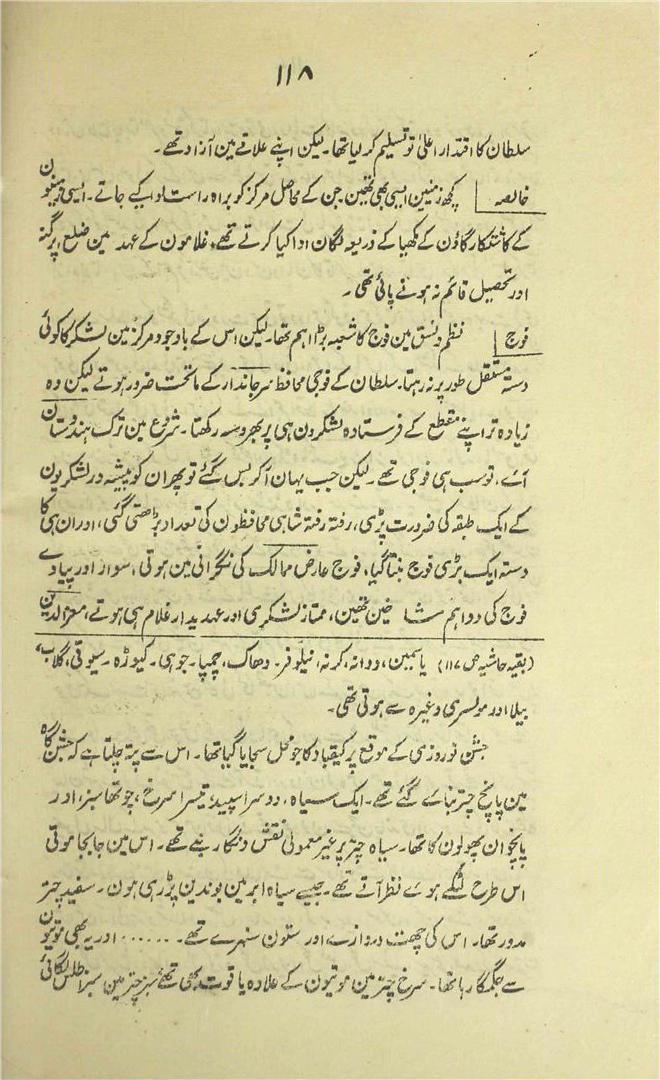 ۱۱۸
سلطان کا اقتدار اعلیٰ تو تسلیم کر لیا تھا۔ لیکن اپنے علاقے مین آزاد تھے۔
خالصہ کچھ زمینین ایسی بھی تھین جن کے محاصل مرکز کو براہ راست ادا کیے جاتے۔ ایسی زمینون
کے کاشتکار گاؤن کے مکھیا کے ذریعہ لگان ادا کیا کرتے تھے، غلامون کے عہد مین ضلع، پرگنہ
اور تحصیل قائم نہ ہونے پائی تھی۔
فوج نظم و نسق مین فوج کا شعبہ بڑا اہم تھا۔ لیکن اس کے باوجود مرکز مین لشکر کا کوئی
دستہ مستقل طور پر نہ رہتا۔ سلطان کے فوجی محافظ سرجاندار کے ماتحت ضرور ہوتے لیکن وہ
زیادہ تر اپنے مقطع کے فرستادہ لشکرون ہی پر بھروسہ رکھتا۔ شروع مین ترک ہندوستان
آئے، تو سب ہی فوجی تھے۔ لیکن جب یہان آکر بس گئے تو پھر ان کو پیشہ ور لشکریون
کے ایک طبقہ کی ضرورت پڑی، رفتہ رفتہ شاہی محافظون کی تعداد بڑھتی گئی، اور ان ہی کا
دستہ ایک بڑی فوج بنتا گیا، فوج عارض ممالک کی نگرانی مین ہوتی، سوار اور پیادے
فوج کی دو اہم شاخین تھین، ممتاز لشکری اور عہدیدار غلام ہی ہوتے، معزالدین
(بقیہ حاشیہ ص ۱۱۷) یاسمین، دوانہ، کرنہ، نیلوفر۔ دھاک، چمپا۔ جوہی۔ کیوڑہ۔ سیوتی، گلاب،
بیلا اور مولسری وغیرہ سے ہوتی تھی۔
جشن نوروزی کے موقع پر کیقباد کا جو محل سجایا گیا تھا۔ اس سے پتہ چلتا ہے کہ جشن گاہ
مین پانچ چتر بنائے گئے تھے۔ ایک سیاہ، دوسرا سپید، تیسرا سرخ، چوتھا سبز، اور
پانچوان پھولون کا تھا۔ سیاہ چتر پر غیر معمولی نقش و نگار بنے تھے۔ اس مین جابجا موتی
اس طرح لٹکے ہوئے نظر آتے تھے۔ جیسے سیاہ ابر مین بوندین پڑ رہی ہون۔ سفید چتر
مدور تھا۔ اس کی چھت دروازے اور ستون سنہرے تھے۔ ...... اور یہ بھی موتیون
سے جگمگا رہا تھا۔ سرخ چتر مین موتیون کے علاوہ یاقوت بھی تھے سبز چتر مین سبز اطلس لگائی